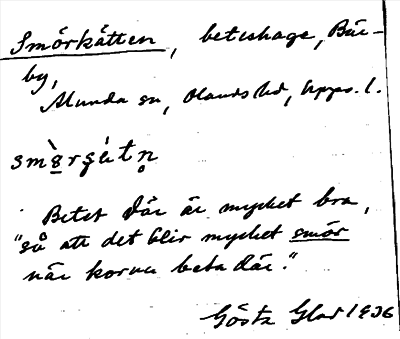 Smörkätten, beteshage, Bär-
by,
Alunda sn, Olands hd, Upps. l.
smö̀rçät́n̥
Betet där är mycket bra,
"så att det blir mycket smör
när korna beta där."
Gösta Glad 1936